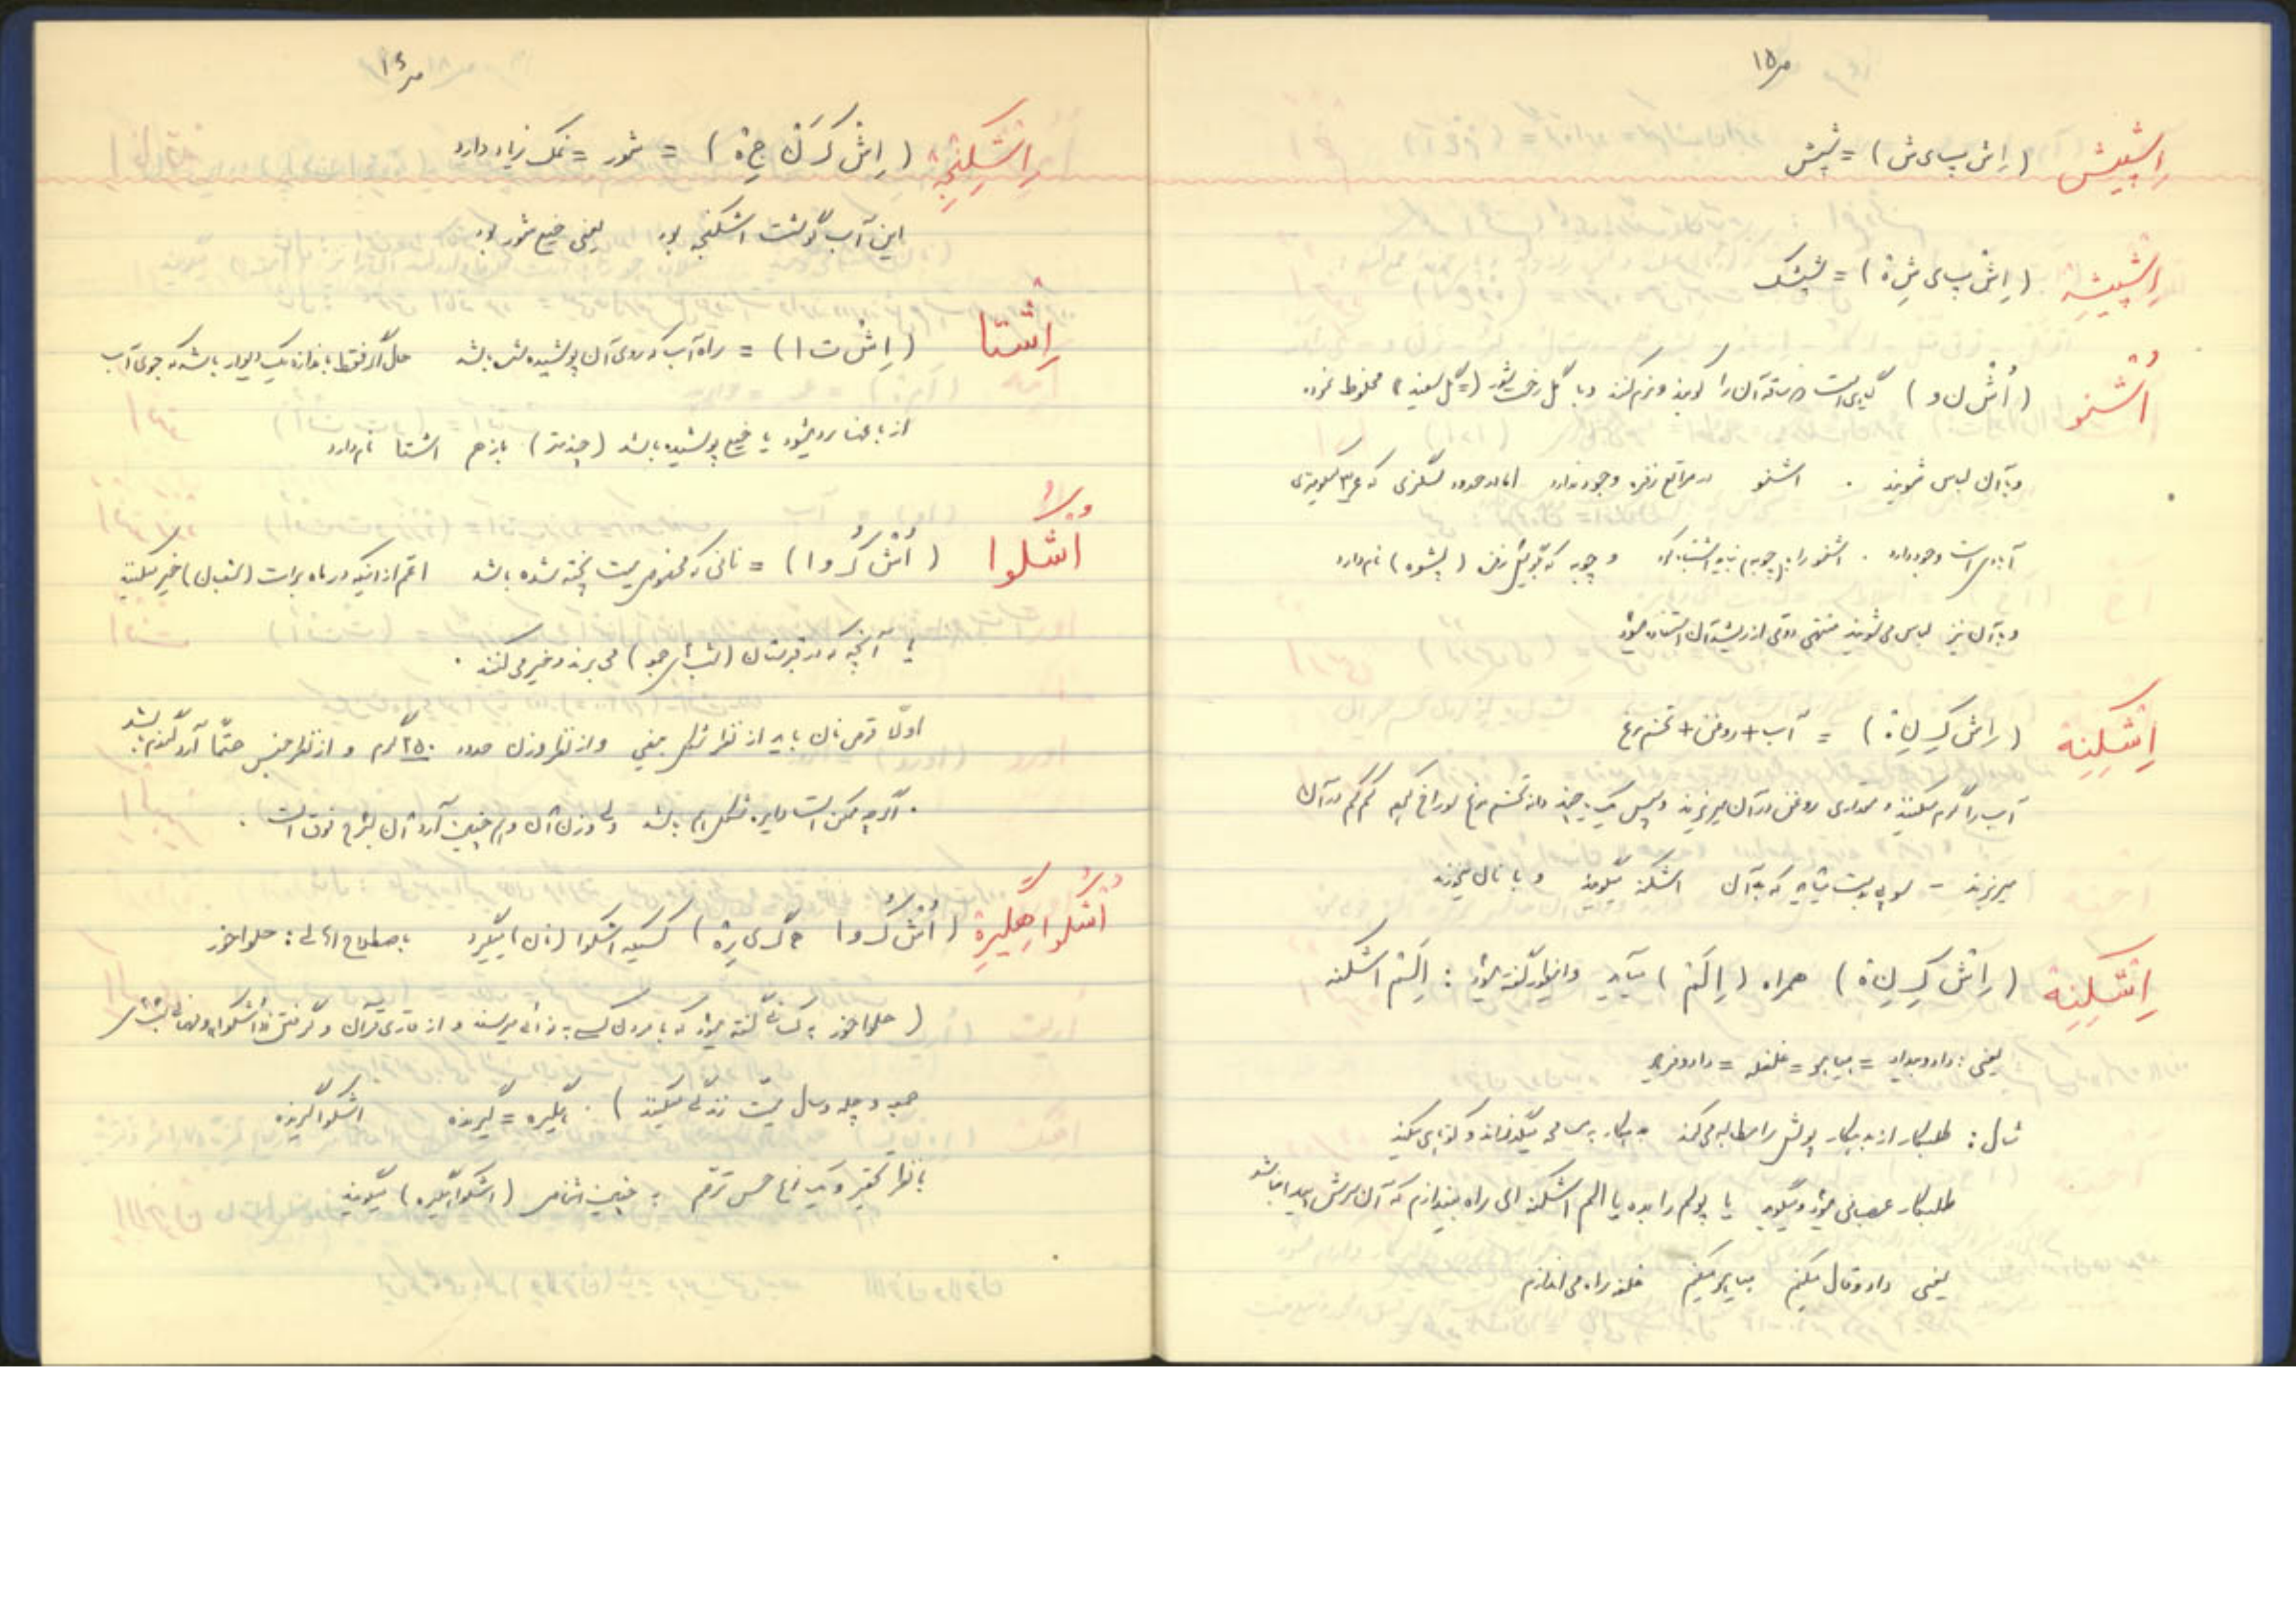 ص ۱۵
اِشپیش (اِش پ ی ش) = شپش
اِشپیشِه (اِش پ ی شِ ة) = شپشک
اُشنو (اُش ن و) گیاهی است که ساقه آن را کوبیده و نرم کنند و با گل رخت شور (= گل سفید) مخلوط نموده
و با آن لباس شویند . اشنو در مراتع نزدیک وجود ندارد اما در حدود که در ۳ کیلومتری
آبادی است وجود دارد . اشنو را با (چوبه) نباید اشتباه کرد و چوبه که نام دارد
و با آن نیز لباس می شویند منتهی وقتی از ریشه آن استفاده میشود
اِشکِنِه (اِش کِ نِ ة) = آب + روغن + تخم مرغ
آب را گرم میکنند و مقداری روغن در آن میریزند و سپس یک یا چند دانه تخم مرغ سوراخ کرده کم کم در آن
میریزند - سوپی بدست میآید که به آن اشکنه میگویند و با نان میخورند
اِشکِنِه (اِش کِ نِ ة) همراه (اِلَم) میآید و اینطور گفته میشود : اِلَم اشکنه
یعنی : داد و بیداد = بیا برو = غلغله = داد و فریاد
مثال : طلبکار از بدهکار پولش را مطالبه می کند بدهکار و کوتاهی میکند
طلبکار عصبانی میشود و میگوید یا پولم را بده یا الم اشکنه ای راه بیندازم که آن سرش
یعنی داد و قال میکنم بیا برو میکنم غلغله راه می اندازم
ص ۱۶
اِشکِنجِه (اِش کَ ن جِ ة) = شور = نمک زیاد دارد
این آب گوشت اشکنجه بود یعنی خیلی شور بود
اِشتا (اِش ت ا) = راه آب که روی آن پوشیده شده باشد حال اگر فقط باندازه یک دیوار باشد که جوی آب
از باغچه رد میشود یا خیلی پوشیده باشد (چند متر) باز هم اشتا نام دارد
اُشکُوا (اُش کُ و ا) = نانی که مخصوص میت پخته شده باشد اعم از اینکه در ماه برات (شعبان) خیر میکنند
یا آنچه که در قبرستان (شب های جمعه) می برند و خیر می کنند .
اولاً قرص نان باید از نظر شکل بیضی و از نظر وزن حدود ۲۵۰ گرم و از نظر جنس حتماً آرد گندم باشد
. اگرچه ممکن است دایره شکل هم باشد ولی وزن آن و همچنین آرد آن بشرح فوق است .
اُشکُواهگیرِه (اُش کُ و ا ه گ ی رِ ة) کسیکه اشکوا (نان) میگیرد باصطلاح اهالی : حلوا خور
(حلوا خور به کسانی گفته میشود که با مردن کسی به نوائی میرسند و از قاری قرآن و گرفتن
جمعه و چله و سال میت زندگی میکنند) . هگیره = گیرنده اشکوا گیرنده
با نظر تحقیر و یک نوع حس ترحم به چنین اشخاص (اشکوا هگیره) میگویند